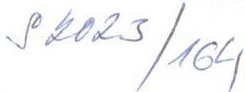 S 2023/164